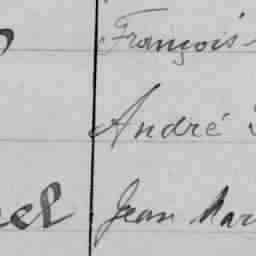 François
André
Jean Mar